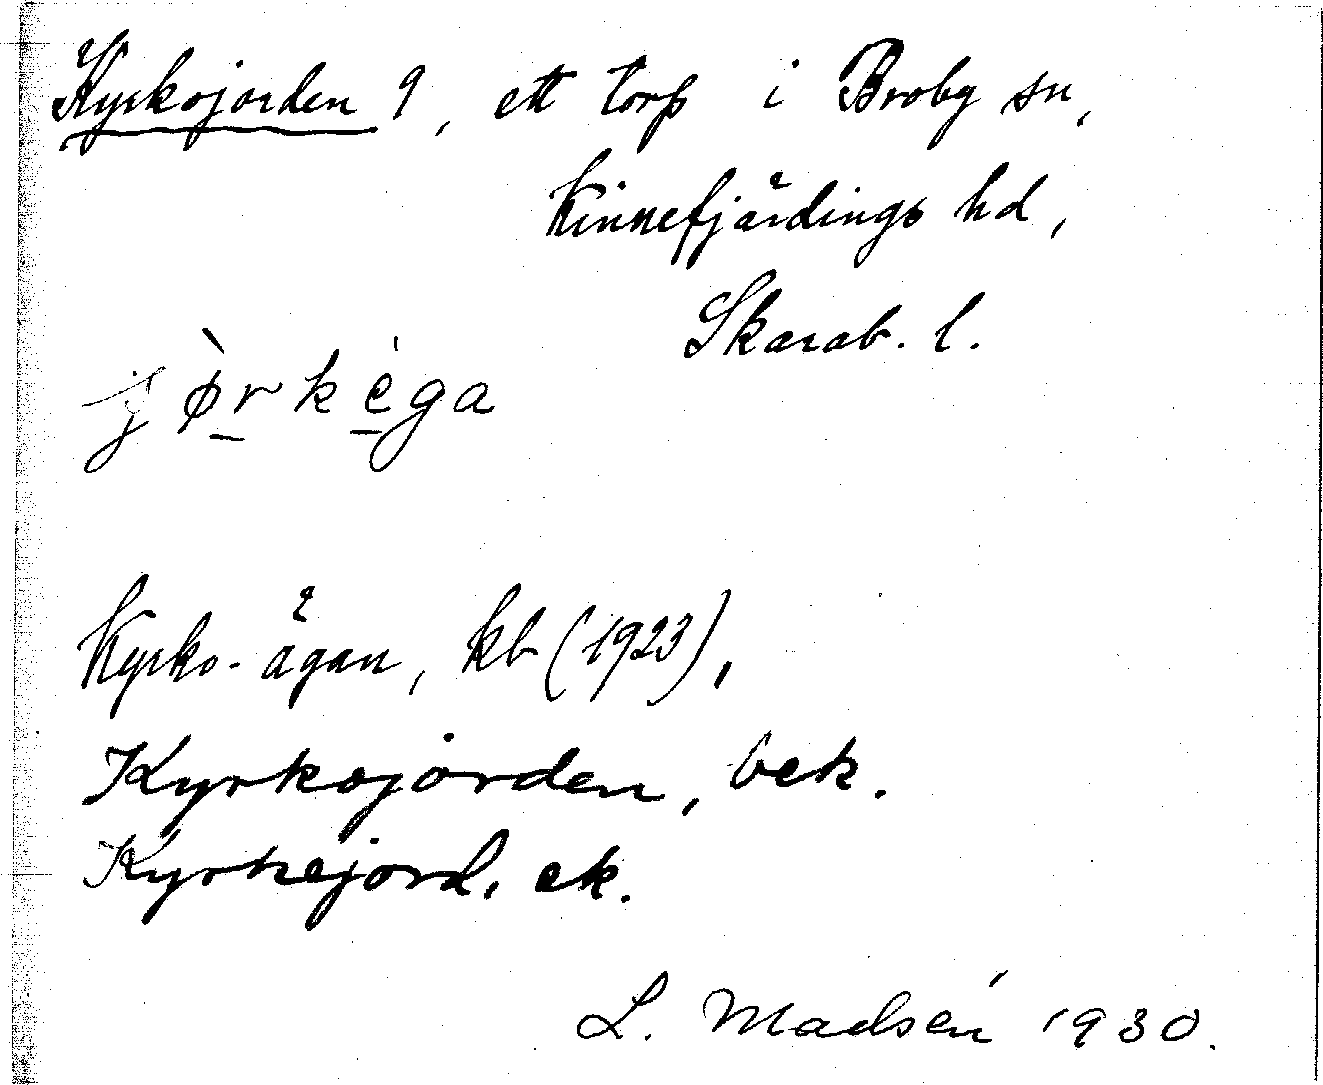 Kyrkojorden 9, ett torp i Broby sn,
Kinnefjärdings hd,
Skarab. l.
jø̀rkéga
Kyrko-ägan, kb (1923),
Kyrkojorden, bek.
Kyrkejord, ek.
L. Madsén 1930.